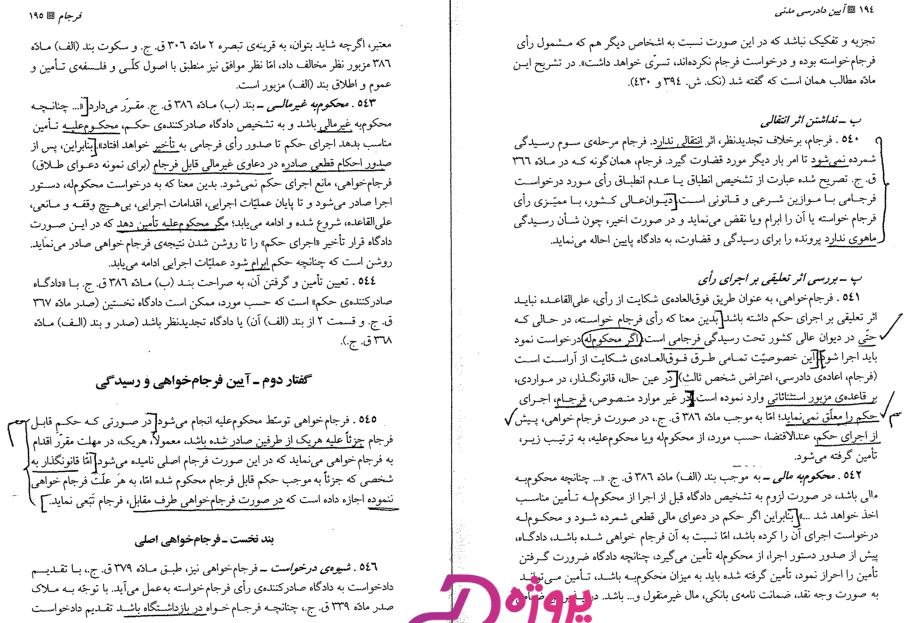 ۱۹۴ آیین دادرسی مدنی
تجزیه و تفکیک نباشد که در این صورت نسبت به اشخاص دیگر هم که مشمول رأی
فرجام‌خواسته بوده و درخواست فرجام نکرده‌اند، تسرّی خواهد داشت». در تشریح این
مادّه مطالب همان است که گفته شد (نک. ش. ۳۹۴ و ۴۳۰).
ب ـ نداشتن اثر انتقالی
۵۴۰ . فرجام، برخلاف تجدیدنظر، اثر انتقالی ندارد. فرجام مرحله‌ی سوم رسیدگی
شمرده نمی‌شود تا امر بار دیگر مورد قضاوت گیرد. فرجام، همان‌گونه که در مادّه ۳۶۶
ق. ج. تصریح شده عبارت از تشخیص انطباق یا عدم انطباق رأی مورد درخواست
فرجامی با موازین شرعی و قانونی است. دیوان‌عالی کشور، با ممیّزی رأی
فرجام خواسته یا آن را ابرام ویا نقض می‌نماید و در صورت اخیر، چون شأن رسیدگی
ماهوی ندارد پرونده را برای رسیدگی و قضاوت، به دادگاه پایین احاله می‌نماید.
پ ـ بررسی اثر تعلیقی بر اجرای رأی
۵۴۱ . فرجام‌خواهی، به عنوان طریق فوق‌العاده‌ی شکایت از رأی، علی‌القاعده نباید
اثر تعلیقی بر اجرای حکم داشته باشد. بدین معنا که رأی فرجام خواسته، در حالی که
حتّی در دیوان عالی کشور تحت رسیدگی فرجامی است، اگر محکوم‌له درخواست نمود
باید اجرا شود. این خصوصیّت تمامی طرق فوق‌العاده‌ی شکایت از آراست است
(فرجام، اعاده‌ی دادرسی، اعتراض شخص ثالث). در عین حال، قانونگذار، در مواردی،
بر قاعده‌ی مزبور استثنائاتی وارد نموده است. در غیر موارد منصوص، فرجام، اجرای
حکم را معلّق نمی‌نماید؛ امّا به موجب مادّه ۳۸۶ ق. ج.، در صورت فرجام خواهی، پیش
از اجرای حکم، عندالاقتضا، حسب مورد، از محکوم‌له ویا محکوم‌علیه، به ترتیب زیر،
تأمین گرفته می‌شود.
۵۴۲ . محکوم‌به مالی ـ به موجب بند (الف) مادّه ۳۸۶ ق. ج. «... چنانچه محکوم‌به
مالی باشد، در صورت لزوم به تشخیص دادگاه قبل از اجرا از محکوم‌له تأمین مناسب
اخذ خواهد شد ...» بنابراین اگر حکم در دعوای مالی قطعی شمرده شود و محکوم‌له
درخواست اجرای آن را کرده باشد، امّا نسبت به آن فرجام خواهی شده باشد، دادگاه،
پیش از صدور دستور اجرا، از محکوم‌له تأمین می‌گیرد، چنانچه دادگاه ضرورت گرفتن
تأمین را احراز نمود، تأمین گرفته شده باید به میزان محکوم‌به باشد، تأمین می‌تواند
به صورت وجه نقد، ضمانت نامه‌ی بانکی، مال غیرمنقول و... باشد.
فرجام ۱۹۵
معتبر، اگرچه شاید بتوان، به قرینه‌ی تبصره ۲ مادّه ۳۰۶ ق. ج. و سکوت بند (الف) مادّه
۳۸۶ مزبور نظر مخالف داد، امّا نظر موافق نیز منطبق با اصول کلّی و فلسفه‌ی تأمین و
عموم و اطلاق بند (الف) مزبور است.
۵۴۳ . محکوم‌به غیرمالی ـ بند (ب) مادّه ۳۸۶ ق. ج. مقرّر می‌دارد «... چنانچه
محکوم‌به غیرمالی باشد و به تشخیص دادگاه صادرکننده‌ی حکم، محکوم‌علیه تأمین
مناسب بدهد اجرای حکم تا صدور رأی فرجامی به تأخیر خواهد افتاد». بنابراین، پس از
صدور احکام قطعی صادره در دعاوی غیرمالی قابل فرجام (برای نمونه دعوای طلاق)
فرجام‌خواهی، مانع اجرای حکم نمی‌شود. بدین معنا که به درخواست محکوم‌له، دستور
اجرا صادر می‌شود و تا پایان عملیّات اجرایی، اقدامات اجرایی، بی‌هیچ وقفه و مانعی،
علی‌القاعده، شروع شده و ادامه می‌یابد؛ مگر محکوم‌علیه تأمین دهد که در این صورت
دادگاه قرار تأخیر «اجرای حکم» را تا روشن شدن نتیجه‌ی فرجام خواهی صادر می‌نماید.
روشن است که چنانچه حکم ابرام شود عملیّات اجرایی ادامه می‌یابد.
۵۴۴ . تعیین تأمین و گرفتن آن، به صراحت بند (ب) مادّه ۳۸۶ ق. ج. با «دادگاه
صادرکننده‌ی حکم» است که حسب مورد، ممکن است دادگاه نخستین (صدر مادّه ۳۶۷
ق. ج. و قسمت ۲ از بند (الف) آن) یا دادگاه تجدیدنظر باشد (صدر و بند (الف) مادّه
۳۶۸ ق. ج.).
گفتار دوم ـ آیین فرجام‌خواهی و رسیدگی
۵۴۵ . فرجام‌خواهی توسّط محکوم‌علیه انجام می‌شود. در صورتی که حکم قابل
فرجام جزئاً علیه هریک از طرفین صادر شده باشد، معمولاً، هریک، در مهلت مقرّر اقدام
به فرجام خواهی می‌نماید که در این صورت فرجام اصلی نامیده می‌شود. امّا قانونگذار به
شخصی که جزئاً به موجب حکم قابل فرجام محکوم شده امّا، به هر علّت فرجام خواهی
ننموده اجازه داده است که در صورت فرجام‌خواهی طرف مقابل، فرجام تَبَعی نماید.
بند نخست ـ فرجام‌خواهی اصلی
۵۴۶ . شیوه‌ی درخواست ـ فرجام‌خواهی نیز، طبق مادّه ۳۷۹ ق. ج.، با تقدیم
دادخواست به دادگاه صادرکننده‌ی رأی فرجام خواسته به‌عمل می‌آید. با توجّه به ملاک
صدر مادّه ۳۳۹ ق. ج.، چنانچه فرجام خواه در بازداشتگاه باشد تقدیم دادخواست
پروژه